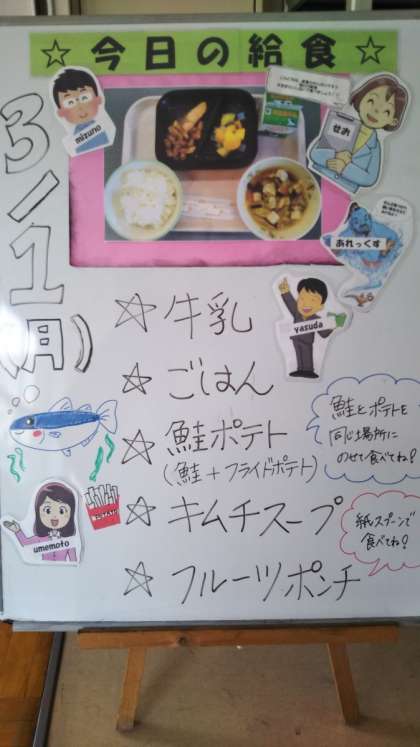 ☆今日の給食☆
3/1(月)
mizuno
せお
あれっくす
yasuda
☆牛乳
☆ごはん
☆鮭ポテト
(鮭+フライドポテト)
鮭とポテトを
同じ場所に
のせて食べてね!
☆キムチスープ
紙スプーンで
食べてね!
☆フルーツポンチ
POTATO
umemoto